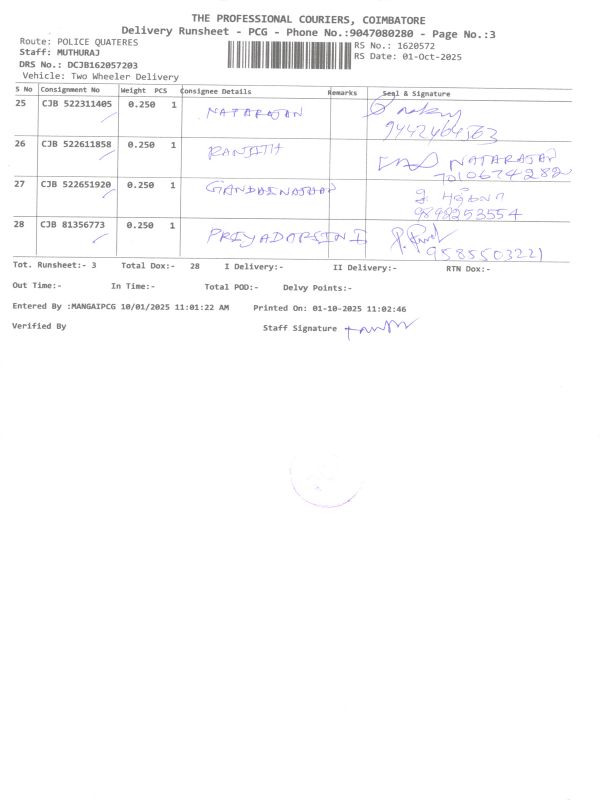 THE PROFESSIONAL COURIERS, COIMBATORE
Delivery Runsheet - PCG - Phone No.:9047080280 - Page No.:3
Route: POLICE QUATERES
RS No.: 1620572
Staff: MUTHURAJ
RS Date: 01-Oct-2025
DRS No.: DCJB162057203
Vehicle: Two Wheeler Delivery
S No Consignment No Weight PCS Consignee Details Remarks Seal & Signature
25 CJB 522311405 0.250 1 NATARAJAN
9442464563
26 CJB 522611858 0.250 1 RANJITH NATARAJAN
7010674282
27 CJB 522651920 0.250 1
9898253554
28 CJB 81356773 0.250 1 PRIYADARSINI
9585503221
Tot. Runsheet:- 3 Total Dox:- 28 I Delivery:- II Delivery:- RTN Dox:-
Out Time:- In Time:- Total POD:- Delvy Points:-
Entered By :MANGAIPCG 10/01/2025 11:01:22 AM Printed On: 01-10-2025 11:02:46
Verified By Staff Signature